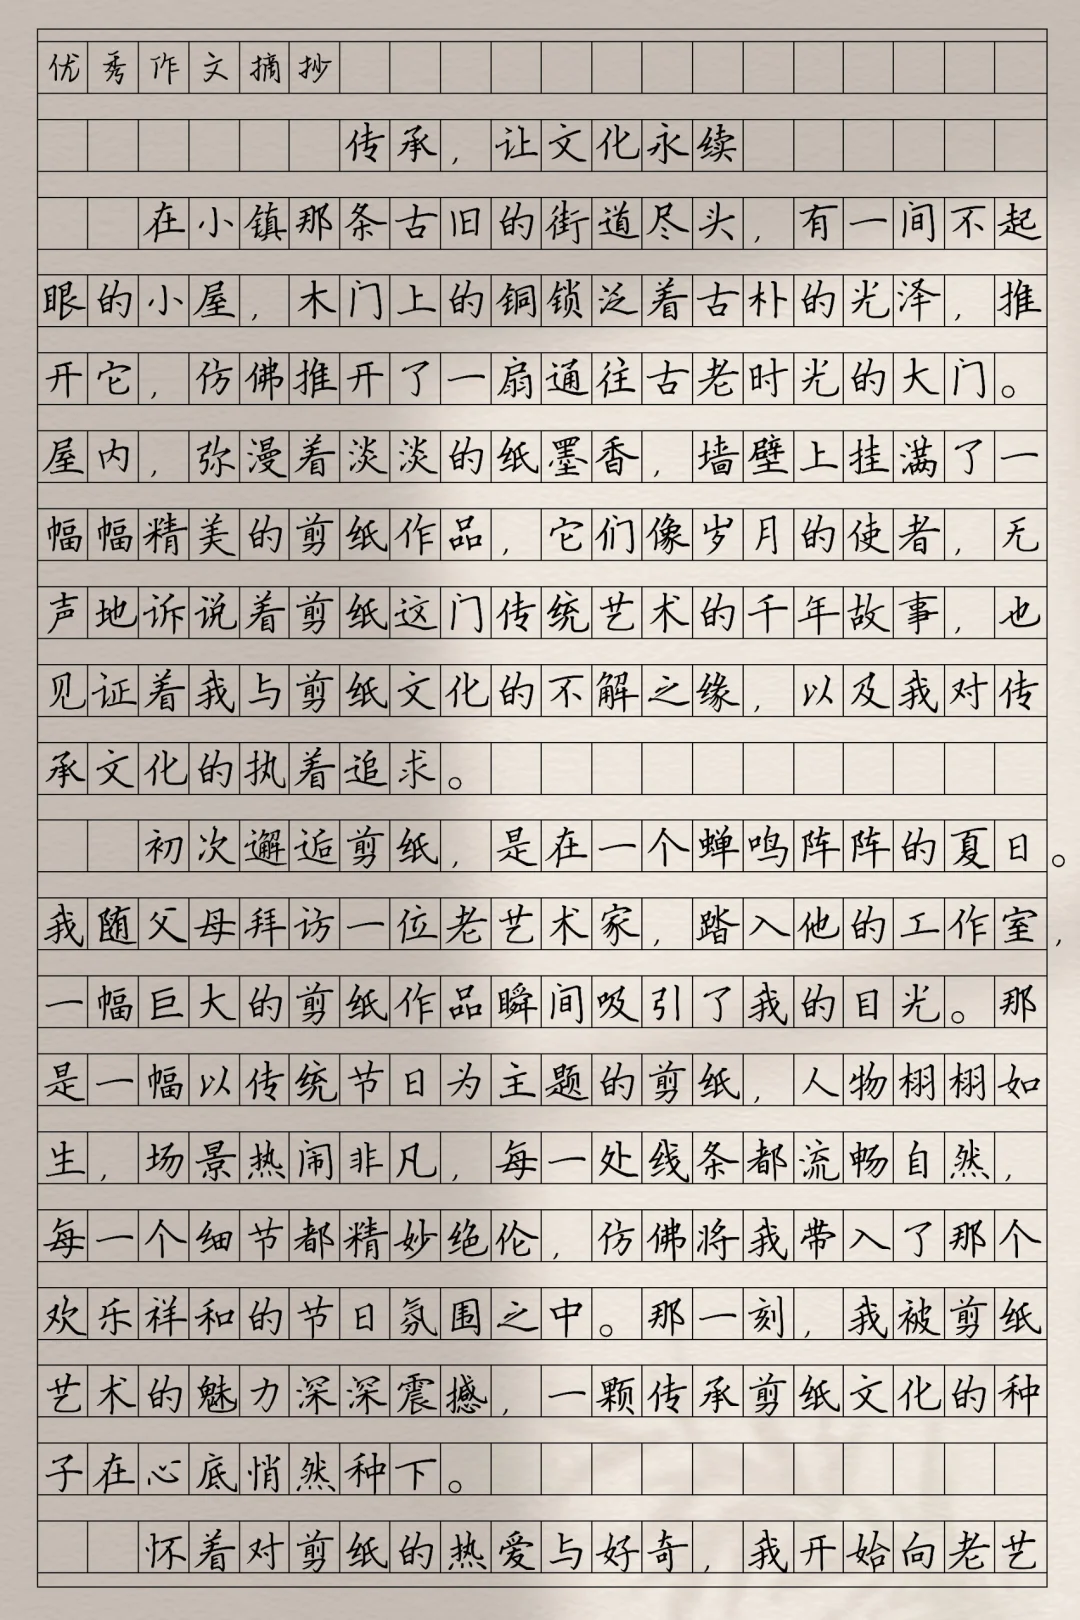 优秀作文摘抄
传承，让文化永续
在小镇那条古旧的街道尽头，有一间不起
眼的小屋，木门上的铜锁泛着古朴的光泽，推
开它，仿佛推开了一扇通往古老时光的大门。
屋内，弥漫着淡淡的纸墨香，墙壁上挂满了一
幅幅精美的剪纸作品，它们像岁月的使者，无
声地诉说着剪纸这门传统艺术的千年故事，也
见证着我与剪纸文化的不解之缘，以及我对传
承文化的执着追求。
初次邂逅剪纸，是在一个蝉鸣阵阵的夏日。
我随父母拜访一位老艺术家，踏入他的工作室，
一幅巨大的剪纸作品瞬间吸引了我的目光。那
是一幅以传统节日为主题的剪纸，人物栩栩如
生，场景热闹非凡，每一处线条都流畅自然，
每一个细节都精妙绝伦，仿佛将我带入了那个
欢乐祥和的节日氛围之中。那一刻，我被剪纸
艺术的魅力深深震撼，一颗传承剪纸文化的种
子在心底悄然种下。
怀着对剪纸的热爱与好奇，我开始向老艺